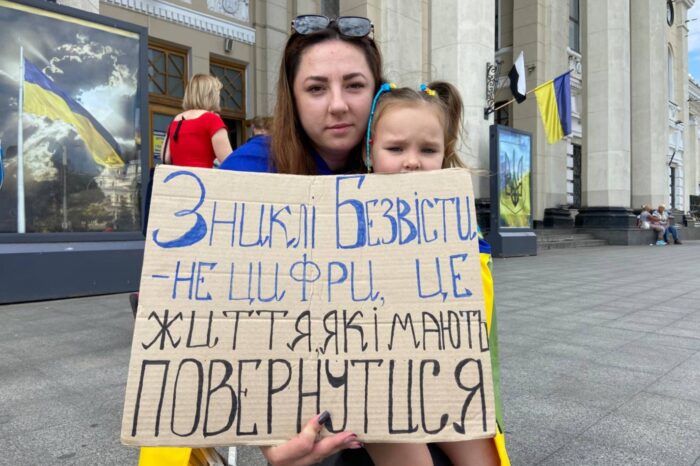 Зниклі Безвісти
- не цифри, це
життя, які мають
повернутися